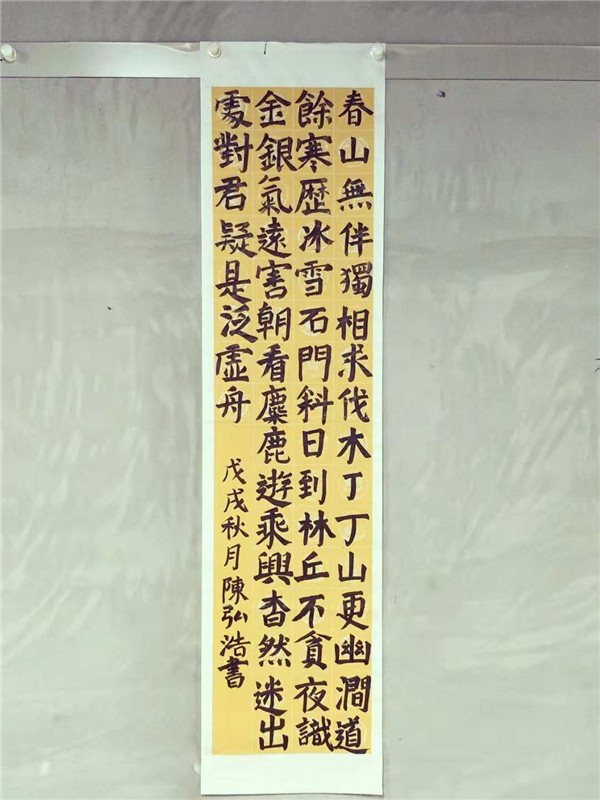 春山無伴獨相求伐木丁丁山更幽澗道
餘寒歴冰雪石門斜日到林丘不貪夜識
金銀氣遠害朝看麋鹿遊乘興杳然迷出
處對君疑是泛虛舟
戊戌秋月陳弘浩書